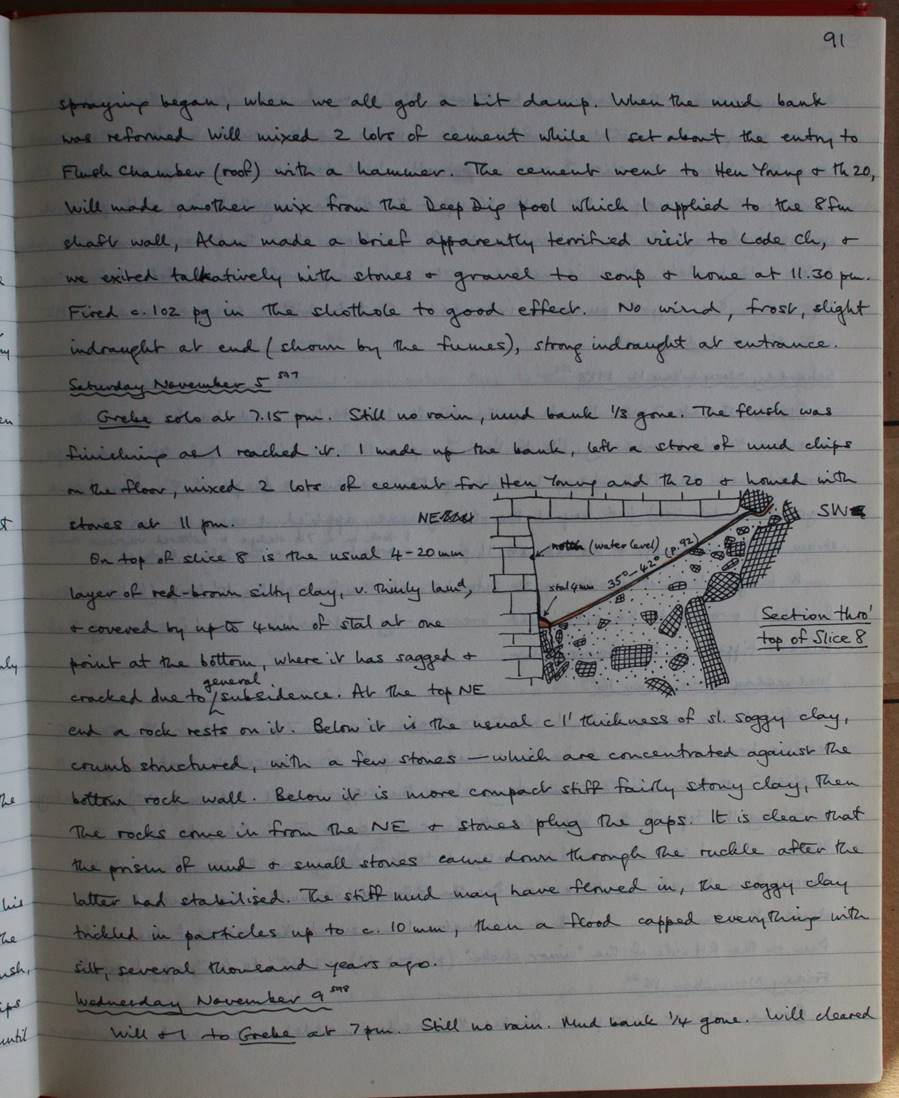 91
spraying began, when we all got a bit damp. When the mud bank
was reformed Will mixed 2 lots of cement while I set about the entry to
Flush Chamber (roof) with a hammer. The cement went to Hen Young & Th 20,
Will made another mix from the Deep Dig pool which I applied to the 8fm
shaft wall, Alan made a brief apparently terrified visit to Lode Ch, &
we exited talkatively with stones & gravel to soup & home at 11.30 pm.
Fired c. 1oz pg in the shothole to good effect. No wind, frost, slight
indraught at end (shown by the fumes), strong indraught at entrance.
Saturday November 5 597
Grebe solo at 7.15 pm. Still no rain, mud bank 1/3 gone. The flush was
finishing as I reached it. I made up the bank, left a store of mud chips
on the floor, mixed 2 lots of cement for Hen Young and Th 20 & homed with
stones at 11 pm.
NE
SW
notch (water level)
35°-42° (p.92)
stal 4mm
Section thro'
top of Slice 8
On top of slice 8 is the usual 4-20mm
layer of red-brown silty clay, v. thinly lamd,
& covered by up to 4mm of stal at one
point at the bottom, where it has sagged &
cracked due to general subsidence. At the top NE
end a rock rests on it. Below it is the usual c 1' thickness of sl. soggy clay,
crumb structured, with a few stones – which are concentrated against the
bottom rock wall. Below it is more compact stiff fairly stony clay, then
the rocks come in from the NE & stones plug the gaps. It is clear that
the prism of mud & small stones came down through the ruckle after the
latter had stabilised. The stiff mud may have flowed in, the soggy clay
trickled in particles up to c. 10 mm, then a flood capped everything with
silt, several thousand years ago.
Wednesday November 9 598
Will & I to Grebe at 7 pm. Still no rain. Mud bank 1/4 gone. Will cleared